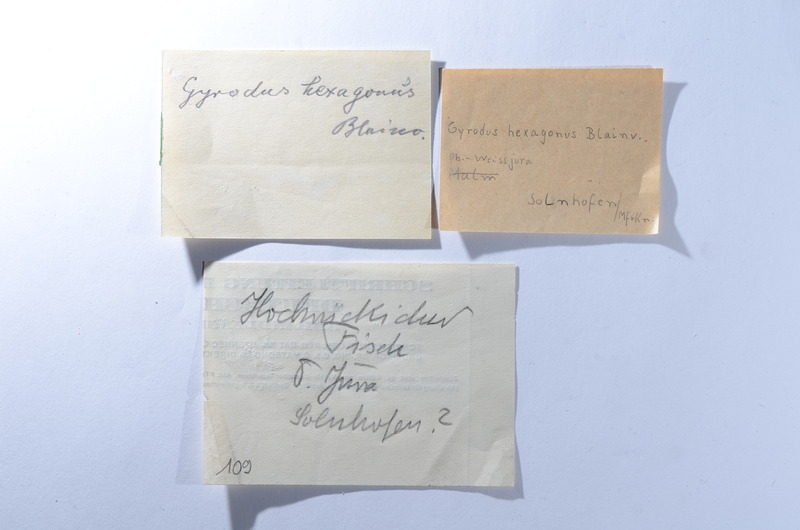 Gyrodus hexagonus
Blainv.
Gyrodus hexagonus Blainv..
Ob.-Weissjura
Malm
Solnhofen/Mfrkn.
Hochrückicher
Fisch
δ. Jura
Solnhofen.?
109